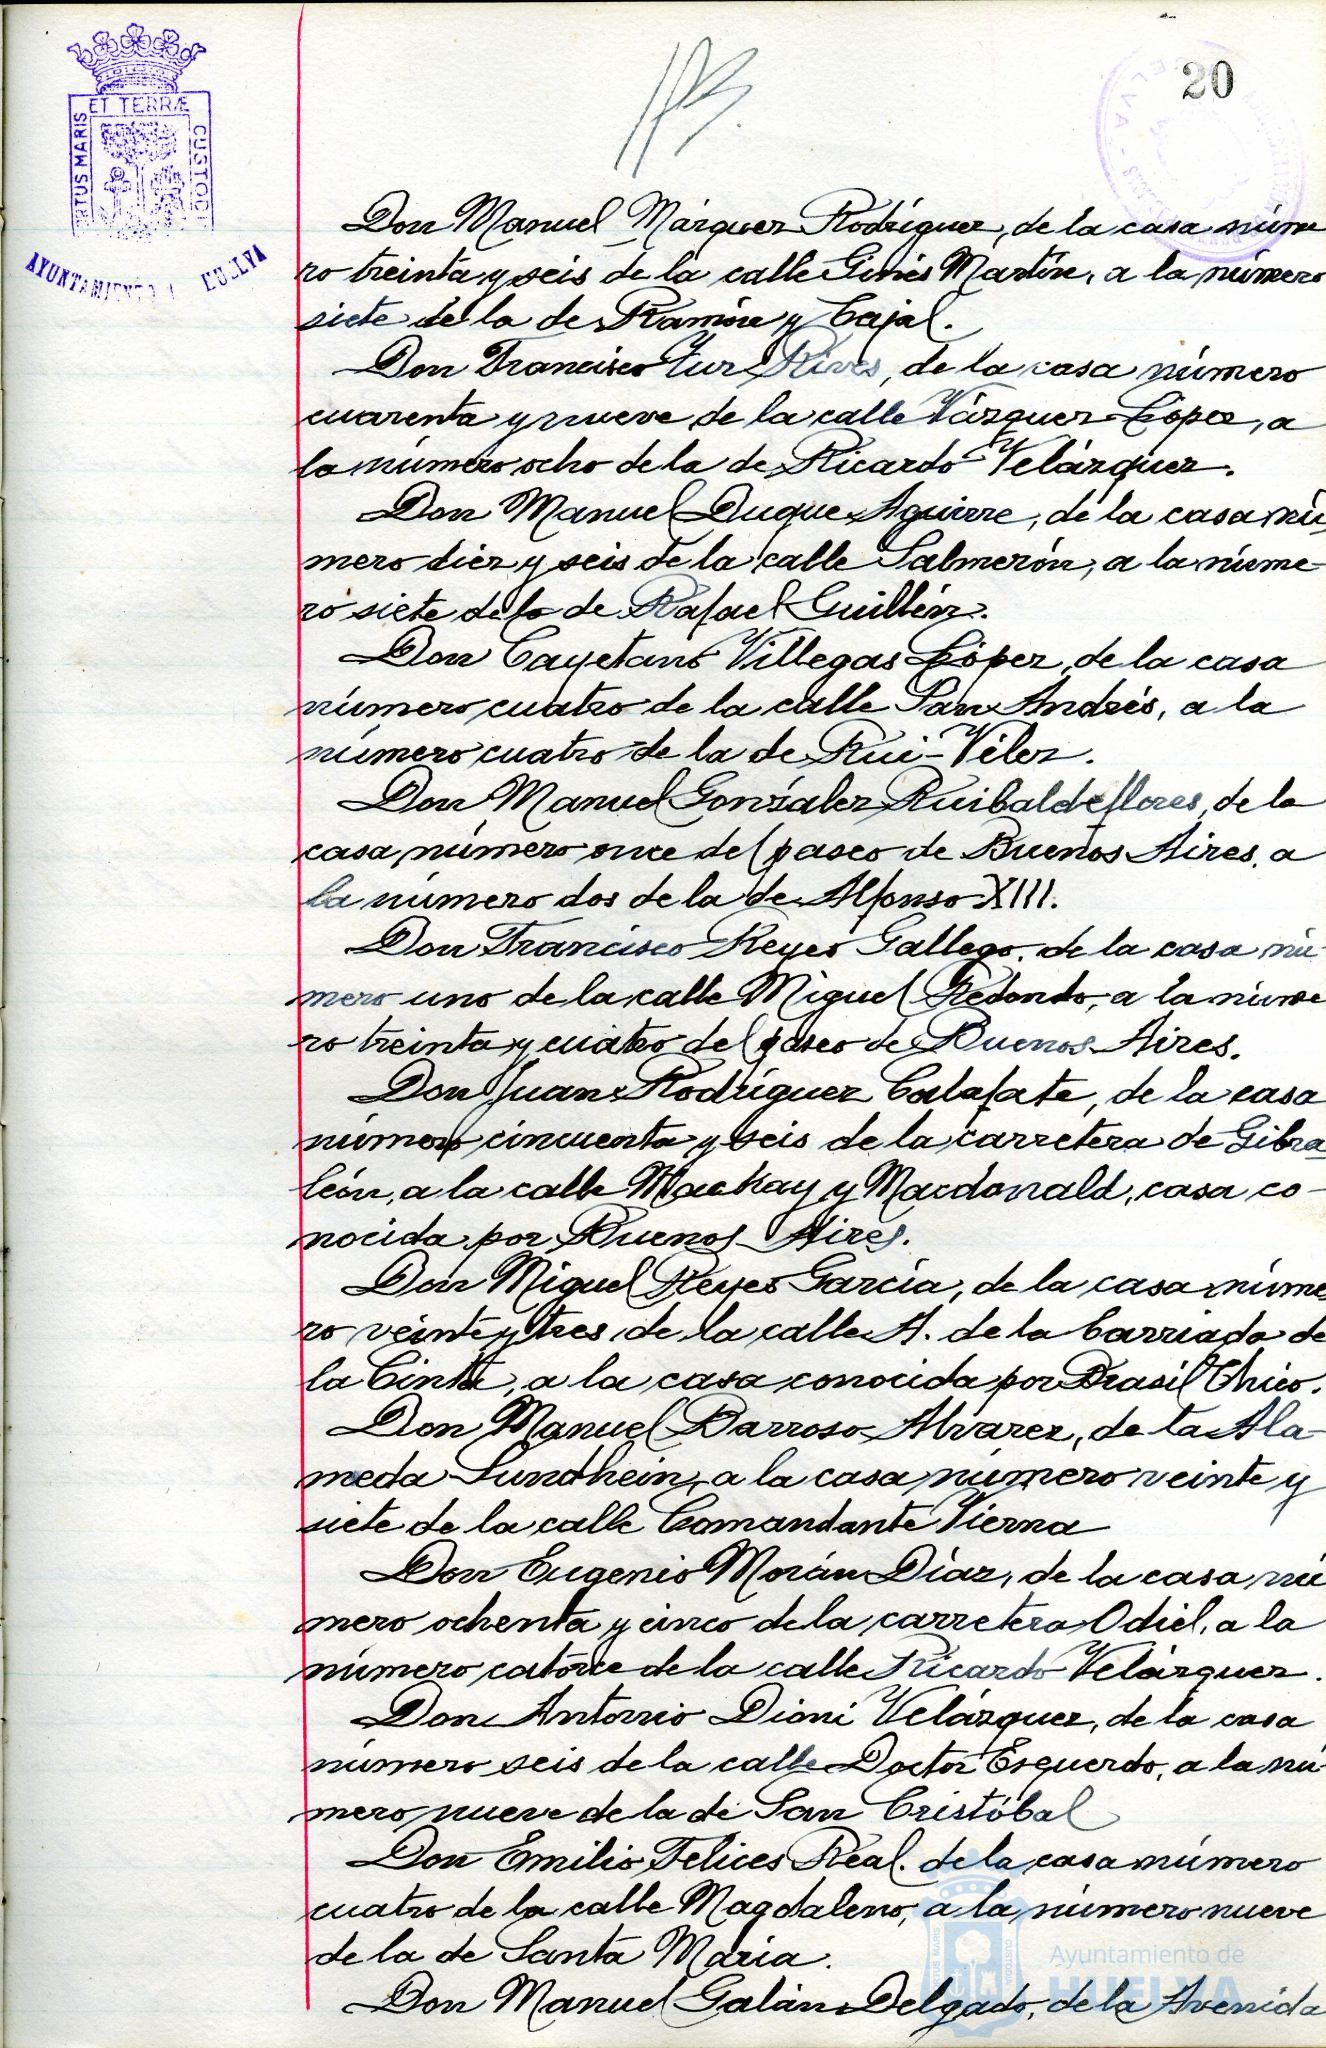 20
ET TERRÆ
RTUS MARIS
CUSTOD
AYUNTAMIENTO HUELVA
Don Manuel Márquez Rodríguez, de la casa núme
ro treinta y seis de la calle Ginés Martín, a la número
siete de la de Ramón y Cajal.
Don Francisco Tur Rives, de la casa número
cuarenta y nueve de la calle Vázquez López, a
la número ocho de la de Ricardo Velázquez.
Don Manuel Duque Aguirre, de la casa nú
mero diez y seis de la calle Salmerón, a la núme-
ro siete de la de Rafael Guillén.
Don Cayetano Villegas López, de la casa
número cuatro de la calle San Andrés, a la
número cuatro de la de Rui-Vélez.
Don Manuel González Ruibaldeflores, de la
casa número once del paseo de Buenos Aires, a
la número dos de la de Alfonso XIII.
Don Francisco Reyes Gallego, de la casa nú-
mero uno de la calle Miguel Redondo, a la núme
ro treinta y cuatro del paseo de Buenos Aires.
Don Juan Rodríguez Calafate, de la casa
número cincuenta y seis de la carretera de Gibra
león, a la calle Mackay y Macdonald, casa co-
nocida por Buenos Aires.
Don Miguel Reyes García, de la casa núme
ro veinte y tres de la calle A. de la barriada de
la Cinta, a la casa conocida por Brasil Chico.
Don Manuel Barroso Alvarez, de la Ala-
meda Sundhein, a la casa número veinte y
siete de la calle Comandante Vierna
Don Eugenio Morán Díaz, de la casa nú
mero ochenta y cinco de la carretera Odiel, a la
número catorce de la calle Ricardo Velázquez.
Don Antonio Dioni Velázquez, de la casa
número seis de la calle Doctor Esquerdo, a la nú-
mero nueve de la de San Cristóbal
Don Emilio Felices Real, de la casa número
cuatro de la calle Magdaleno, a la número nueve
de la de Santa María.
Don Manuel Galán Delgado, de la Avenida
Ayuntamiento de
HUELVA